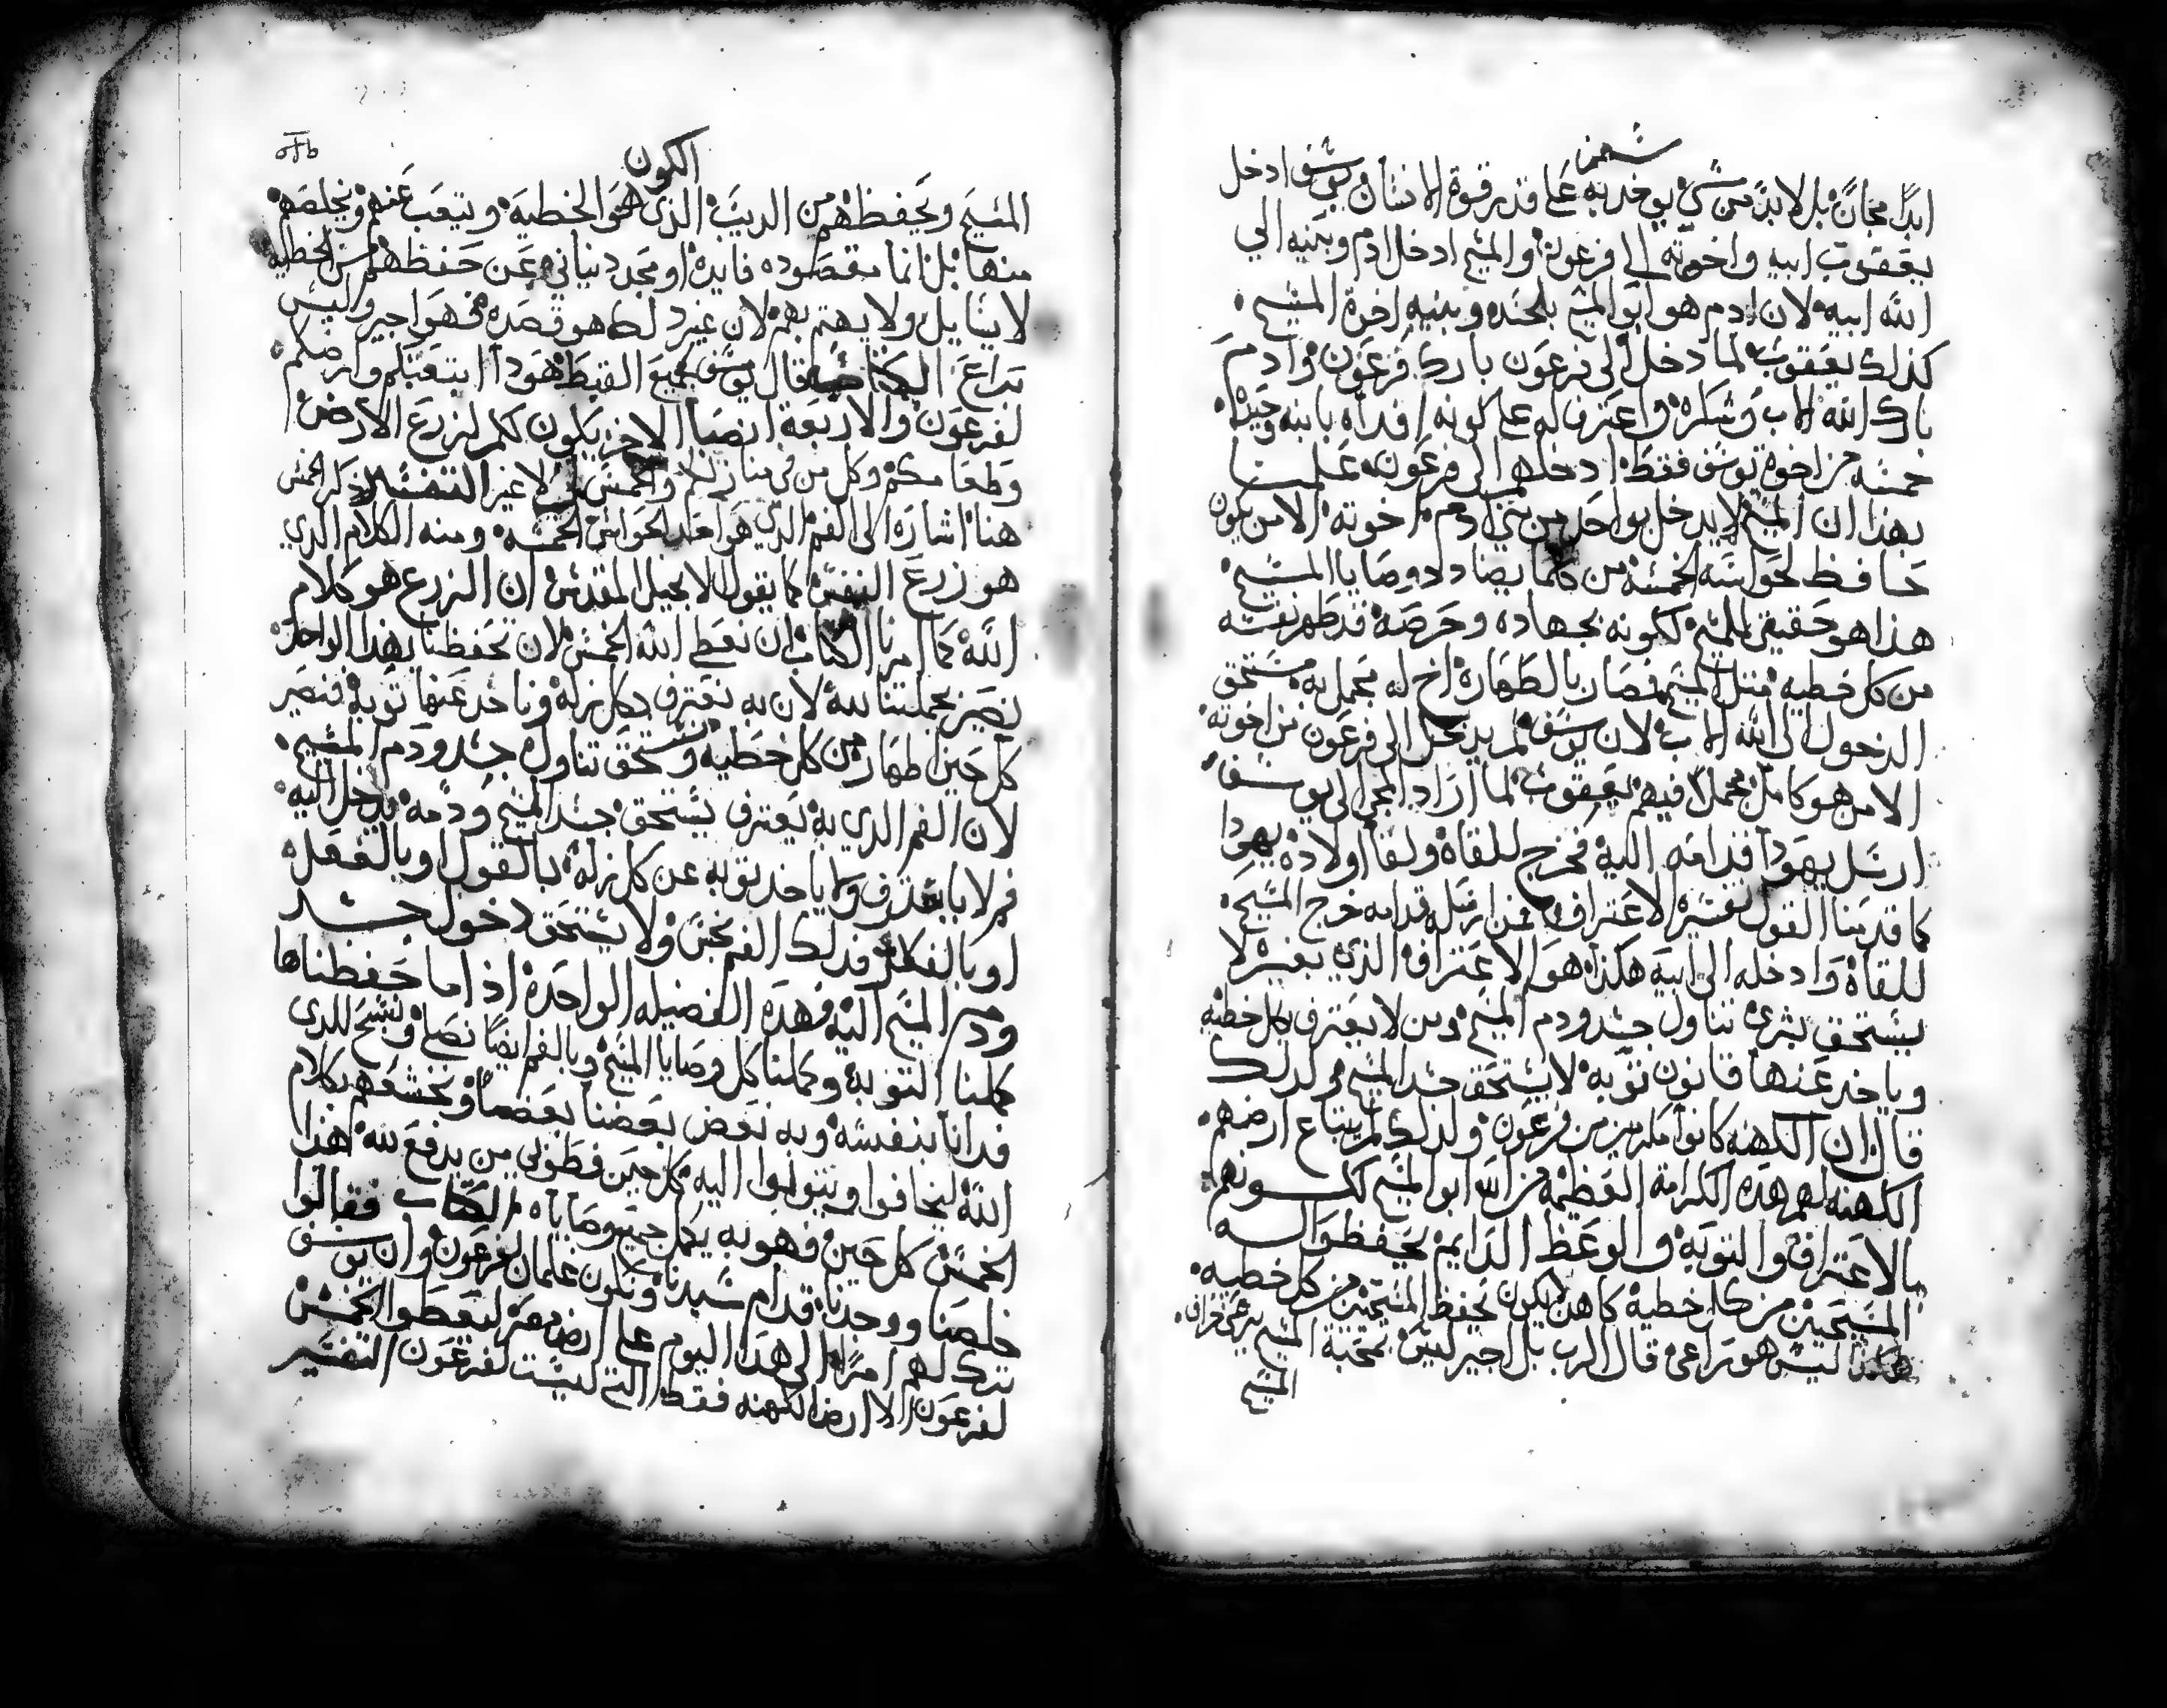 شمز
ابدًا مجانًا بل لابد من شي يوخد به علي قدر قوة الانسان يوسف ادخل
يعقوب ابيه واخوته الي فرعون والمسيح ادخل ادم وبنيه الي
الله ابيه لان ادم هو ابو المسيح بلجسده وبنيه اخوة المسيح
كذلك يعقوب لما دخل الي فرعون بارك فرعون وادم
بارك الله الاب وشكره واعترف له علي كونه افداه بابنه وحيده
خمسه من اخوة يوسف فقط ادخلهم الي فرعون علمنا
بهذا ان المسيح لا يدخل بواحد من بني ادم اخوته الا من يكون
حافظ لحواسه الخمسه من كلما يضادد وصايا المسيح
هذا هو حقيقي للمسيح لكونه بجهاده وحرصه قد طهر نفسه
من كل خطيه متل المسيح فصار بالطهاره اخ له مجمل به مستحق
الدخول الي الله الاب لان يوسف لم يدخل الي فرعون من اخوته
الا من هو كامل مجملا فيهم يعقوب لما اراد المجي الي يوسف
ارسل يهودا قدامه اليه فخرج للقاه ولقا اولاده يهودا
كما قدمنا القول تفسيره الاعتراف فمن ارسله قدامه خرج المسيح
للقاه وادخله الي ابيه هكذا هو الاعتراف الذي بغيره لا
يستحق بشري تناول جسد ودم المسيح ومن لا يعترف بكل خطيه
وياخد عنها قانون توبه لا يستحق جسد المسيح ولدلك
قال ان الكهنه كانوا مكرمين من فرعون ولذلك لم يبتاع ارضهم
الكهنه لهم هذه الكرامة العظيمه من الله ابو المسيح لكونهم
بالاعتراف والتوبه والوعظ الدايم يحفظوا له
المسيحيين من كل خطية كاهن لا يكون يحفظ المسيحيين من كل خطيه
هكذا ليس هو راعي قال الرب بل اجير ليس بمحبة المسيح يرعي خراف
المسيح
الكون
المسيح ويحفظهم من الديب الذي هو الخطيه ويتعب عنهم ويخلصهم
منها بل انما مقصوده فايده او مجد دنياني عن حفظهم من الخطيه
لا يسايل ولا يهتم بهم لان غير دلك هو قصده فهو اجير وليس
براع الكتاب قال يوسف لجميع القبط هودا ابتعتكم وارضكم
لفرعون والاربعة انصبا الاخر يكون لكم لزرع الارض
وطعامكم وكل من في منازلكم والخمس لي لا غير التفسير ذكر الخمس
هنا اشاره الي الفم الذي هو احد الحواس الخمسه ومنه الكلام الدي
هو زرع النفس كما يقول الانجيل المقدس ان الزرع هو كلام
الله كما امرنا الكتاب ان نعطي الله الخمس لان تحفظنا بهذا الواحد
نصير بجملتنا لله لان به نعترف بكل زله وناخد عنها توبه فنصير
كل حين اطهار من كل خطيه ونستحق تناول جسد ودم المسيح
لان الفم الدي به يعترف يستحق جسد المسيح ودمه يدخل اليه
فم لا يعترف ولا ياخد توبه عن كل زله بالقول او بالفعل
او بالفكر فدلك الفم نجس ولا يستحق دخول جسد
ودم المسيح اليه فهذه الفضيله الواحده اذ اما حفظناها
كملنا التوبه وكملنا كل وصايا المسيح وبالفم ايضًا نصلي ونسبح للدي
فدانا بنفسه وبه نعض بعضنا بعضًا ونخشعهم بكلام
الله ليخافوا ويتوبوا اليه كل حين فطوبي من يدفع لله هذا
الخمس كل حين فهو به يكمل جميع وصاياه الكتاب فقالوا
خلصنا ووجدنا قدام سيدنا ونكون غلمان لفرعون وان يوسف
ترك لهم امرًا الي هذا اليوم علي ارض مصر ليعطوا الخمس
لفرعون الا ارض الكهنه فقط التي ليست لفرعون التفسير